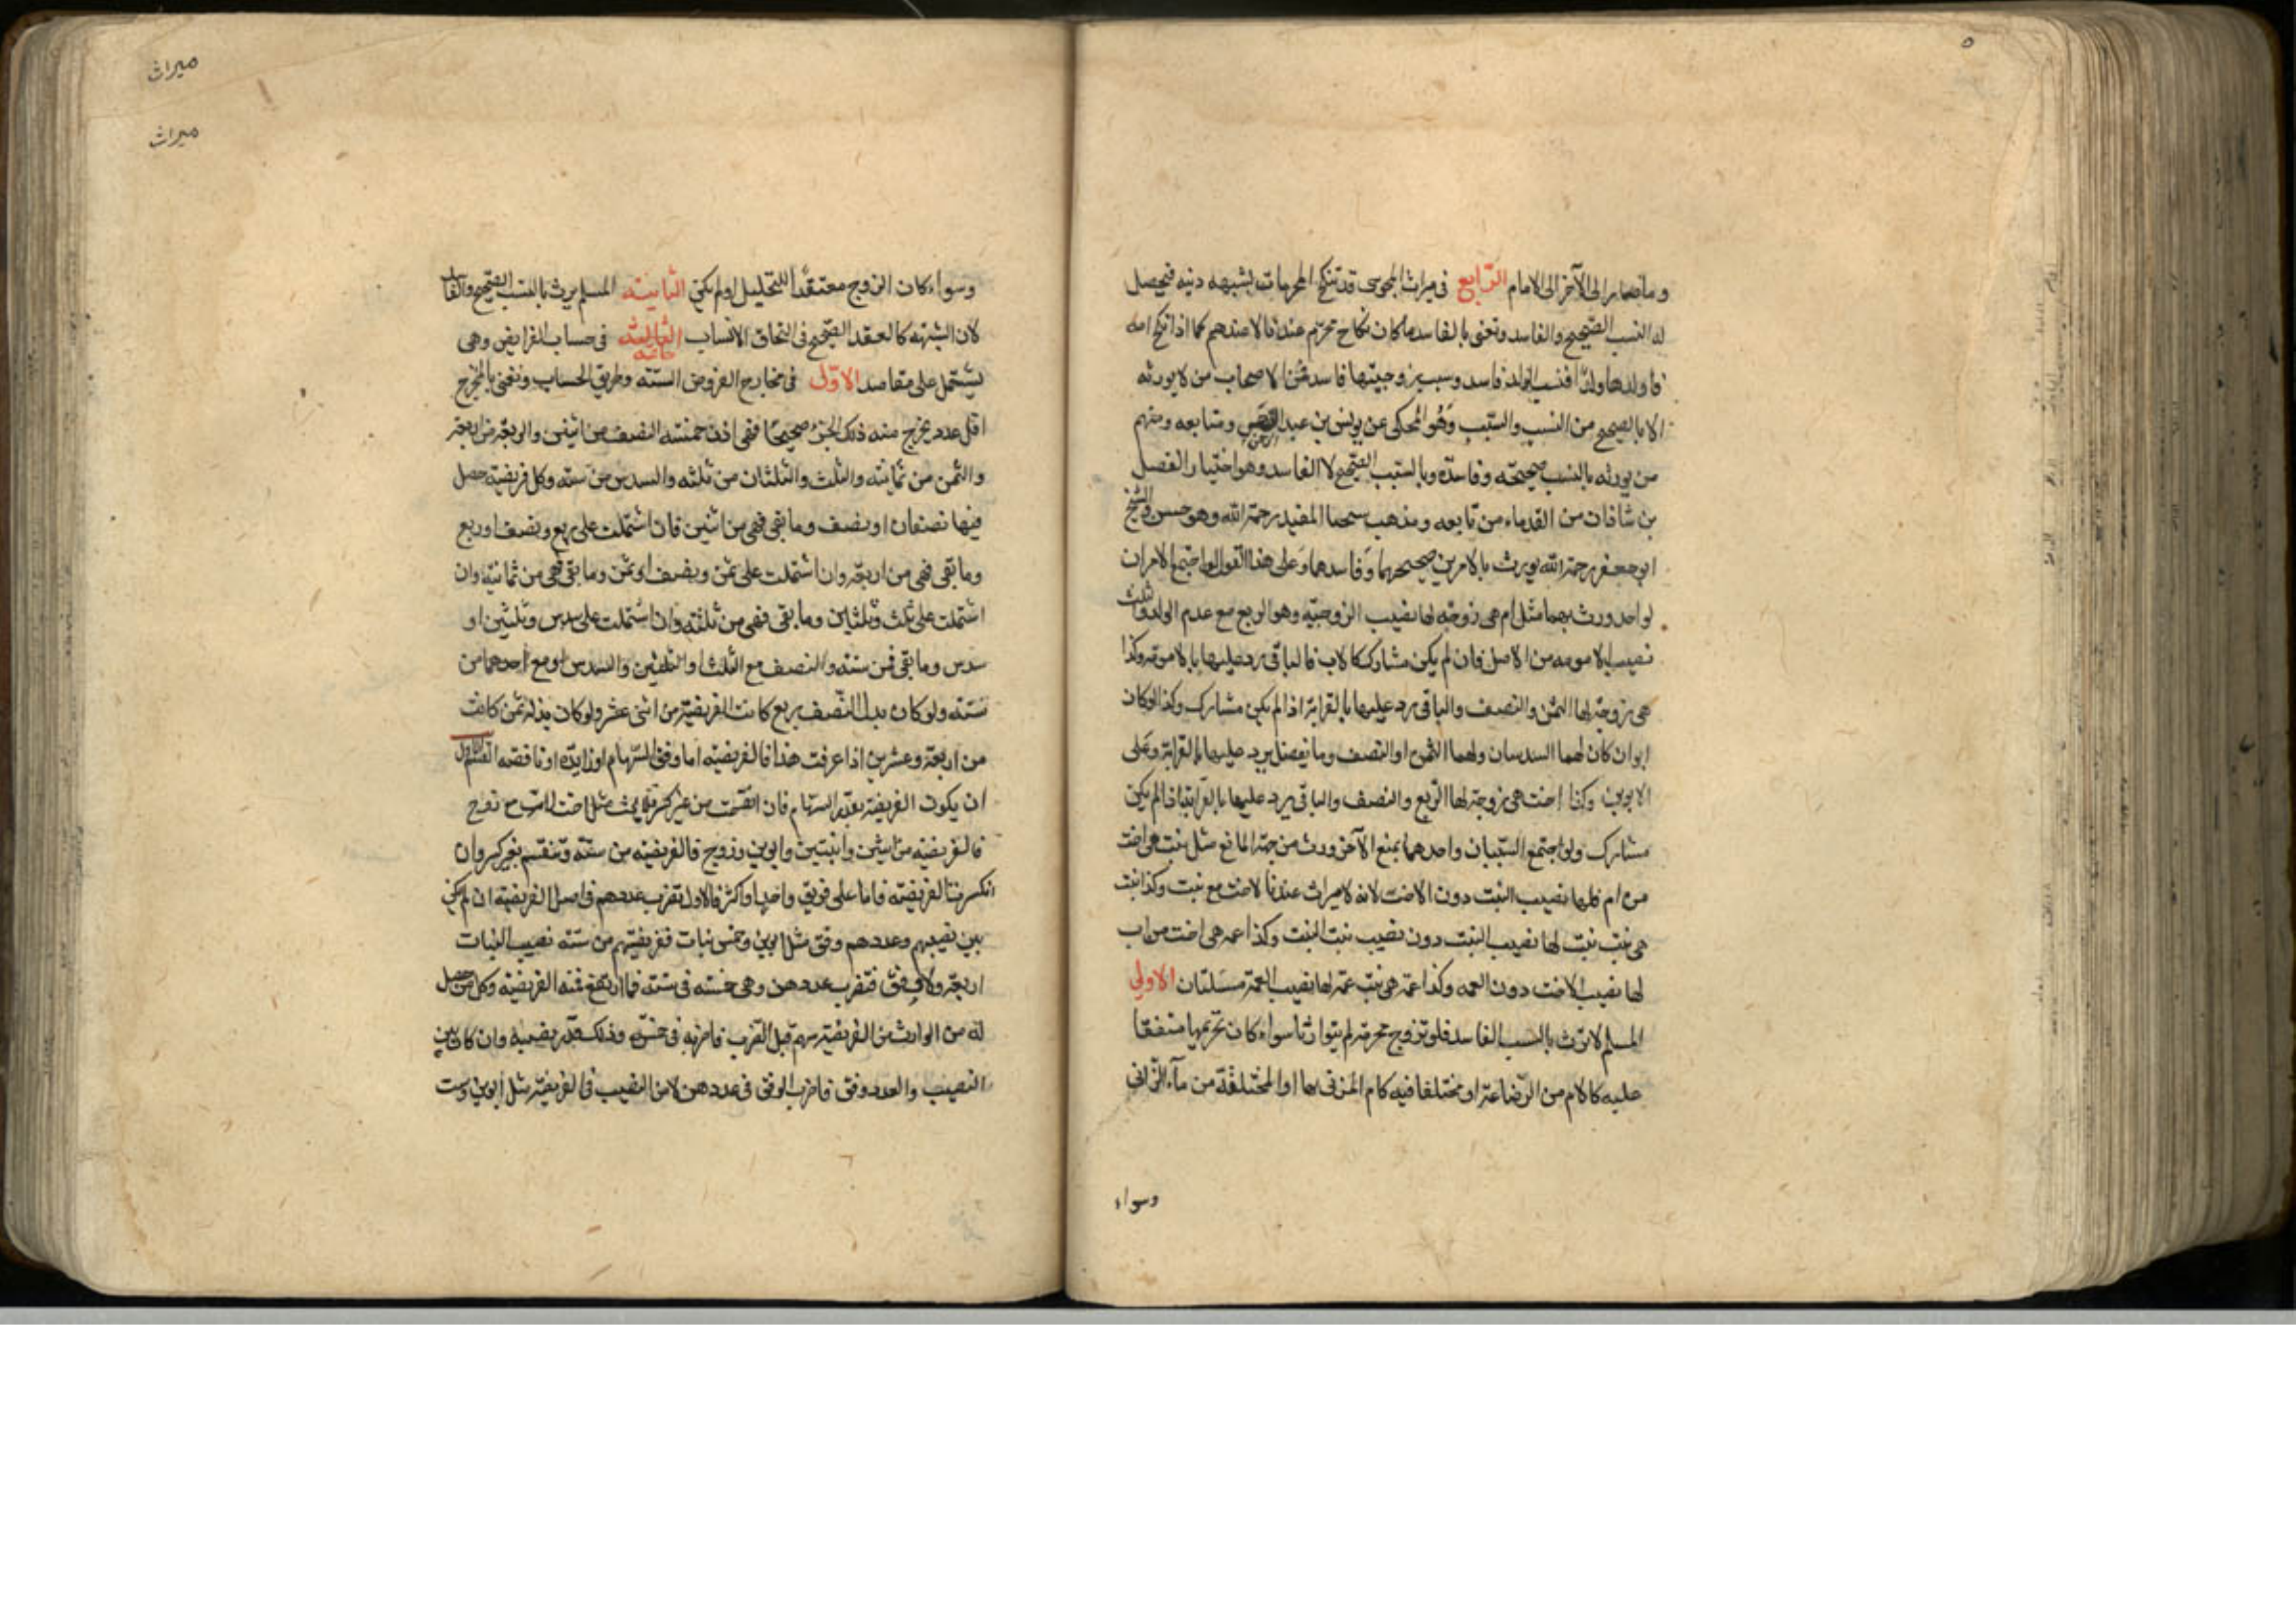 وما صار الى الآخر الى الامام الرابع فى ميراث المجوسى قد تنكح المحرمات لشبهه دينه فيحصل
له النسب الصحيح والفاسد ونعنى بالفاسد ما كان نكاح محرم عندنا لا عندهم كما اذا نكح امه
فاولدها ولدا فنسب الولد فاسد وسبب زوجيتها فاسد فمن الاصحاب من لا يورثه
الا بالصحيح من النسب والسبب وهو المحكى عن يونس بن عبد الرحمن ومتابعه ومنهم
من يورثه بالنسب صحيحه وفاسده وبالسبب الصحيح لا الفاسد وهو اختيار الفضل
بن شاذان من القدماء من تابعه ومذهب شيخنا المفيد رحمة الله وهو حسن والشيخ
ابو جعفر رحمة الله يورث بالامرين صحيحهما وفاسدهما وعلى هذا القول لو اجتمع الامران
لواحد ورث بهما مثل ام هى زوجة لها نصيب الزوجية وهو الربع مع عدم الولد وثلث
نصيب الامومه من الاصل فان لم يكن مشارك كالاب فالباقى يرد عليها بالامومة وكذا
هى زوجة لها الثمن والنصف والباقى يرد عليها بالقرابة اذا لم يكن مشارك وكذا لو كان
ابوان كان لهما السدسان ولهما الثمن والنصف وما يفضل يرد عليها بالقرابة وعلى
الابوين وكذا اخت هى زوجة لها الربع والنصف والباقى يرد عليها بالقرابة اذا لم يكن
مشارك ولو اجتمع السببان واحدهما يمنع الآخر ورث من جهة المانع مثل بنت هى اخت
من ام فلها نصيب البنت دون الاخت لانه لا ميراث عندنا لاخت مع بنت وكذا بنت
هى بنت بنت لها نصيب البنت دون نصيب بنت البنت وكذا عمه هى اخت من اب
لها نصيب الاخت دون العمه وكذا عمة هى بنت عمة لها نصيب العمة مسئلتان الاولى
المسلم لا يرث بالسبب الفاسد فلو تزوج محرمة لم يتوارثا سواء كان تحريمها متفقا
عليه كالام من الرضاعة او مختلفا فيه كام المزنى بها او المختلقة من ماء الزانى
وسواء
ميراث
ميراث
وسواء كان الزوج معتقدا للتحليل او لم يكن الثانية المسلم يرث بالنسب الصحيح والفاسد
لان الشبهه كالعقد الصحيح فى التحاق الانساب الثالثة خاتمه فى حساب الفرايض وهى
يشتمل على مقاصد الاول فى مخارج الفروض الستة وطريق الحساب ونعنى بالمخرج
اقل عدد يخرج منه ذلك الجزء صحيحا فهى اذن خمسة النصف من اثنين والربع من اربعة
والثمن من ثمانية والثلث والثلثان من ثلثه والسدس من سته وكل فريضة حصل
فيها نصفان او نصف وما بقى فهى من اثنين فان اشتملت على ربع ونصف او ربع
وما بقى فهى من اربعة وان اشتملت على ثمن ونصف او ثمن وما بقى فهى من ثمانية وان
اشتملت على ثلث وثلثين وما بقى فهى من ثلثة وان اشتملت على سدس وثلثين او
سدس وما بقى فمن سته والنصف مع الثلث او الثلثين والسدس او مع احدهما من
ستة ولو كان بدل النصف ربع كانت الفريضة من اثنى عشر ولو كان بدله ثمن كانت
من اربعة وعشرين اذا عرفت هذا فالفريضه اما وفق السهام او زايدة او ناقصه القسم الاول
ان يكون الفريضة بقدر السهام فان انقسمت من غير كسر فلا بحث مثل اخت لاب مع زوج
فالفريضه من اثنين وابنتين وابوين وزوج فالفريضه من ستة وتنقسم بغير كسر وان
انكسرت الفريضه فاما على فريق واحد او اكثر فالاول تضرب عددهم فى اصل الفريضة ان لم يكن
بين نصيبهم وعددهم وفق مثل ابوين وخمس بنات فريضتهم من ستة نصيب البنات
اربعة ولا وفق فتضرب عددهن وهى خمسه فى ستة فما ارتفع فمنه الفريضة وكل من حصل
له من الوارث من الفريضة سهم قبل الضرب فاضربه فى خمسة وذلك قدر نصيبه وان كان بين
النصيب والعدد وفق فاضرب الوفق فى عددهن لا من النصيب فى الفريضة مثل ابوين وست